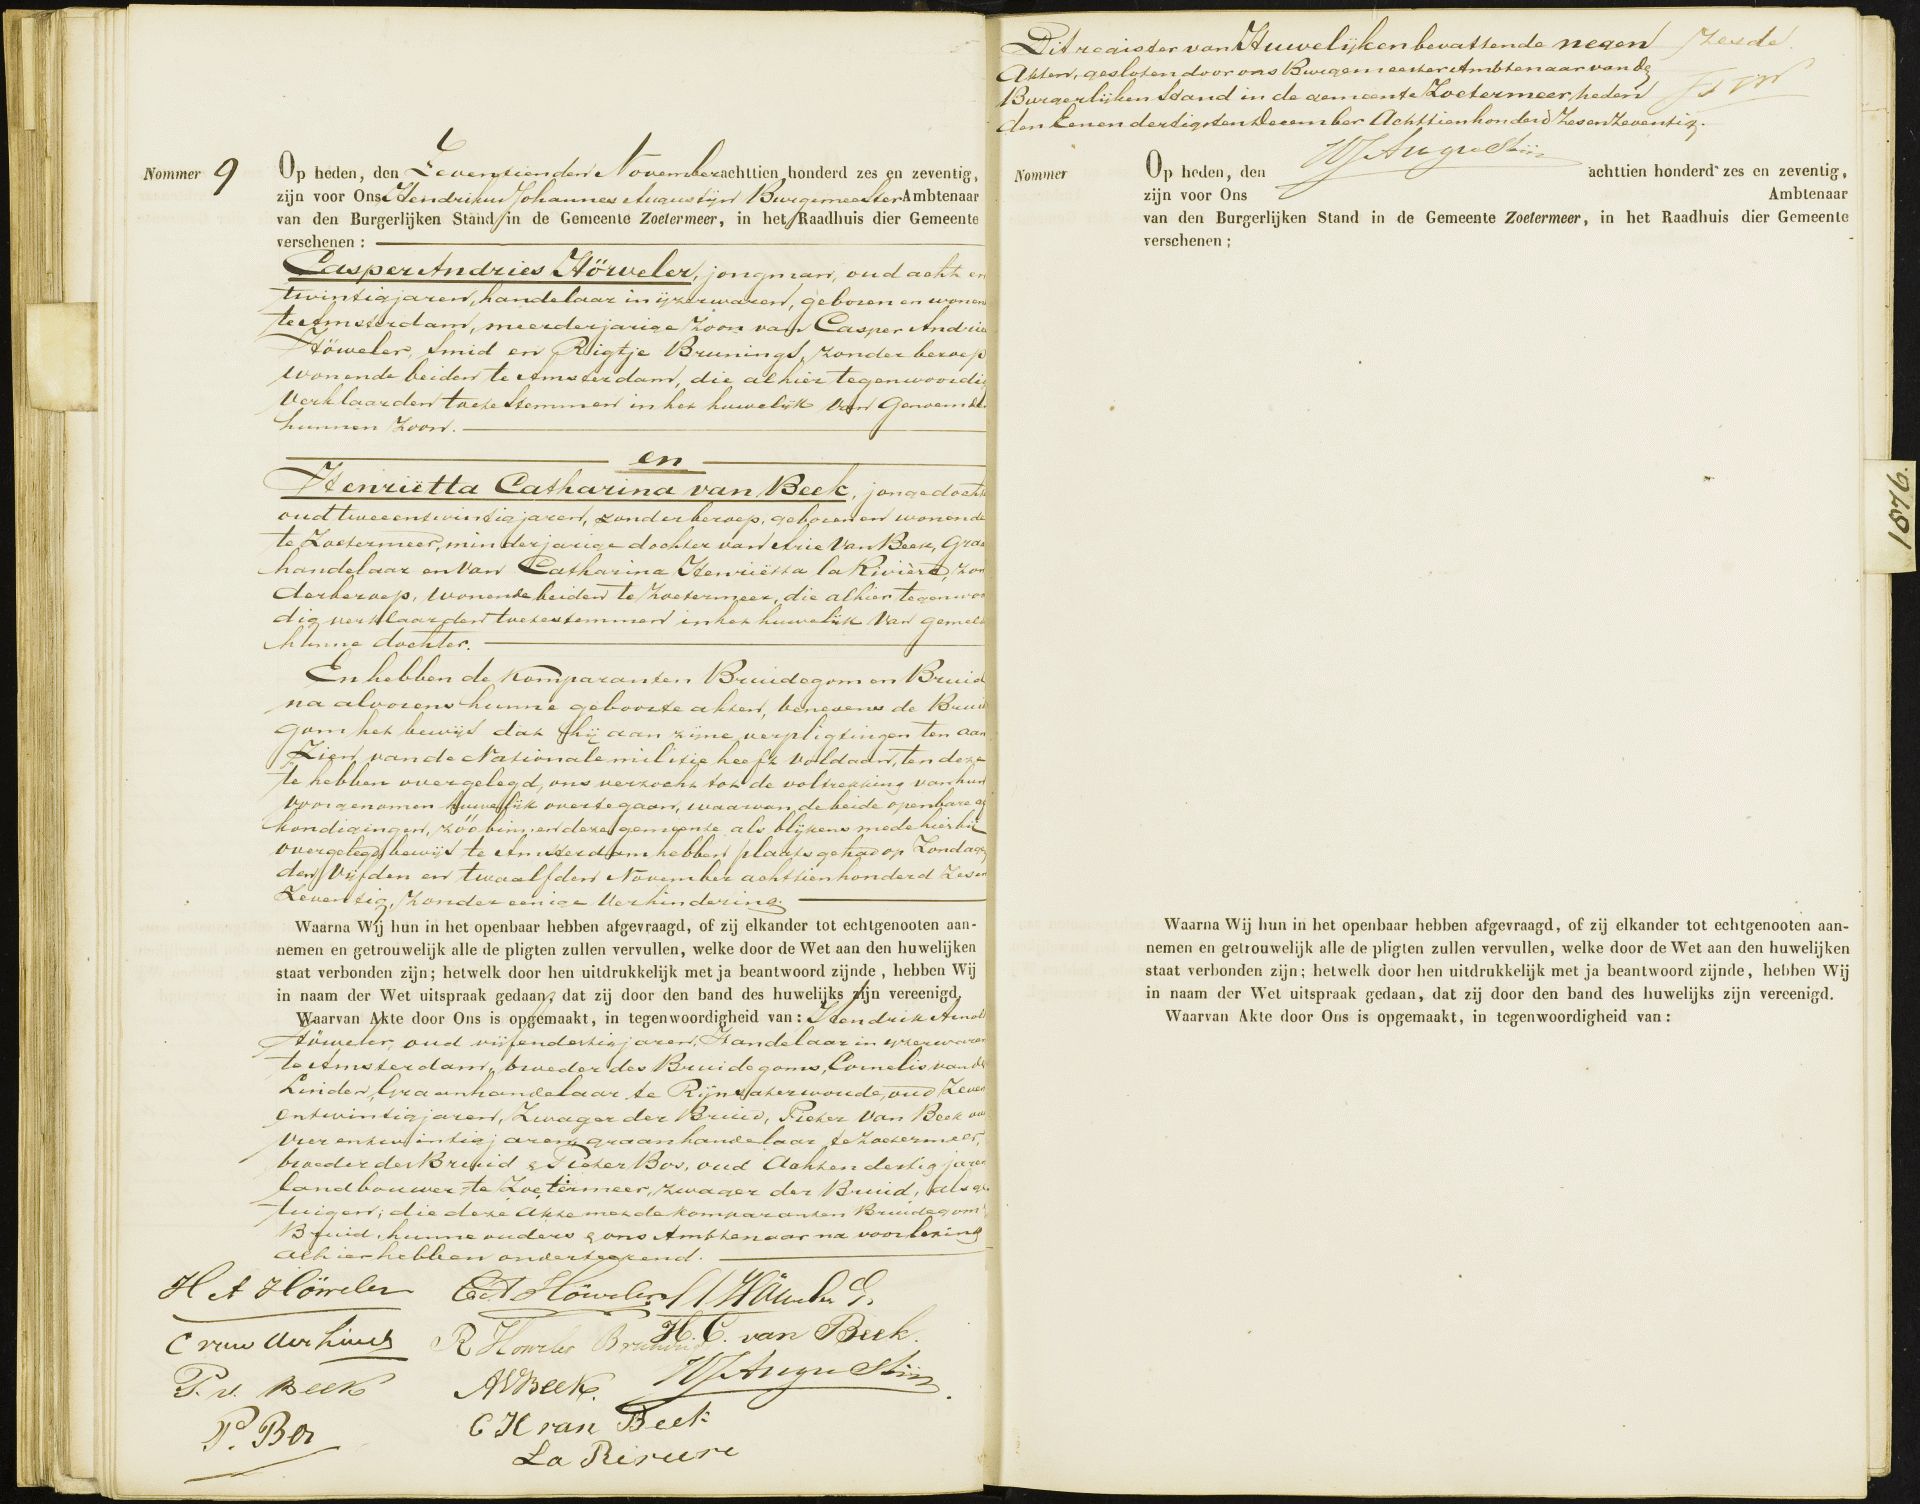 Nommer 9
Op heden, den Zeventienden November achttien honderd zes en zeventig,
zijn voor Ons Hendrikus Johannes Augustijn Burgemeester Ambtenaar
van den Burgerlijken Stand in de Gemeente Zoetermeer, in het Raadhuis dier Gemeente
verschenen:
Casper Andries Höweler, jongman, oud acht en
twintig jaren, handelaar in ijzerwaren, geboren en wonen
te Amsterdam, meerderjarige zoon van Casper Andries
Höweler, Smid en Rigtje Brunings, zonder beroep
wonende beiden te Amsterdam, die alhier tegenwoordig
verklaarden toetestemmen in het huwelijk van genoemde
hunnen zoon.
en
Henriëtta Catharina van Beek, jonge docht
oud tweeentwintig jaren, zonder beroep, geboren en wonende
te Zoetermeer, minderjarige dochter van Arie Van Beek, Graa
handelaar en Van Catharina Henriëtta la Rivière, zon
der beroep, wonende beiden te Zoetermeer, die alhier tegenwoor
dig verklaarden toetestemmen in het huwelijk van gemeld
hunne dochter.
En hebben de komparanten Bruidegom en Bruid
na alvorens hunne geboorte akten, benevens de Bruid
gom het bewijs dat hij aan zijne verpligtingen ten aan
zien van de Nationale militie heeft voldaan, ten deze
te hebben overgelegd, ons verzocht tot de voltrekking van hun
voorgenomen huwelijk overtegaan, waarvan de beide openbare af
kondigingen, zóó binnen deze gemeente als blijkens mede hierbij
overgelegd bewijs te Amsterdam hebben plaats gehad op Zondagen
den Vijfden en twaalfden November achttienhonderd Zesen
Zeventig, zonder eenige verhindering.
Waarna Wij hun in het openbaar hebben afgevraagd, of zij elkander tot echtgenooten aan-
nemen en getrouwelijk alle de pligten zullen vervullen, welke door de Wet aan den huwelijken
staat verbonden zijn; hetwelk door hen uitdrukkelijk met ja beantwoord zijnde, hebben Wij
in naam der Wet uitspraak gedaan, dat zij door den band des huwelijks zijn vereenigd.
Waarvan Akte door Ons is opgemaakt, in tegenwoordigheid van: Hendrik Arnold
Höweler, oud vijfendertig jaren, Handelaar in ijzerwaren
te Amsterdam, broeder des Bruidegoms, Cornelis van der
Linden, Graanhandelaar te Rijnsaterwoude, oud Zeven
entwintig jaren, Zwager der Bruid, Pieter Van Beek oud
vierentwintig jaren, graanhandelaar te Zoetermeer,
broeder der Bruid & Pieter Bos, oud Achtendertig jaren
landbouwer te Zoetermeer, zwager der Bruid, als ge
tuigen; die deze akte met de komparanten Bruidegom &
Bruid, hunne ouders & ons Ambtenaar na voorlezing
alhier hebben onderteekend.
H A Höweler CA Höweler
C van der Linden R Höweler Brunings H. C. van Beek.
P. v. Beek AVBeek. HJAugustijn
P. Bos C H van Beek
La Riviere
Dit register van Huwelijken bevattende negen
Akten, gesloten door ons Burgemeester Ambtenaar van de
Burgerlijken Stand in de gemeente Zoetermeer, heden
den Eenen dertigsten December Achttienhonderd Zesenzeventig.
HJAugustijn
Zesde
Nommer
Op heden, den achttien honderd zes en zeventig,
zijn voor Ons Ambtenaar
van den Burgerlijken Stand in de Gemeente Zoetermeer, in het Raadhuis dier Gemeente
verschenen;
Waarna Wij hun in het openbaar hebben afgevraagd, of zij elkander tot echtgenooten aan-
nemen en getrouwelijk alle de pligten zullen vervullen, welke door de Wet aan den huwelijken
staat verbonden zijn; hetwelk door hen uitdrukkelijk met ja beantwoord zijnde, hebben Wij
in naam der Wet uitspraak gedaan, dat zij door den band des huwelijks zijn vereenigd.
Waarvan Akte door Ons is opgemaakt, in tegenwoordigheid van:
1876.